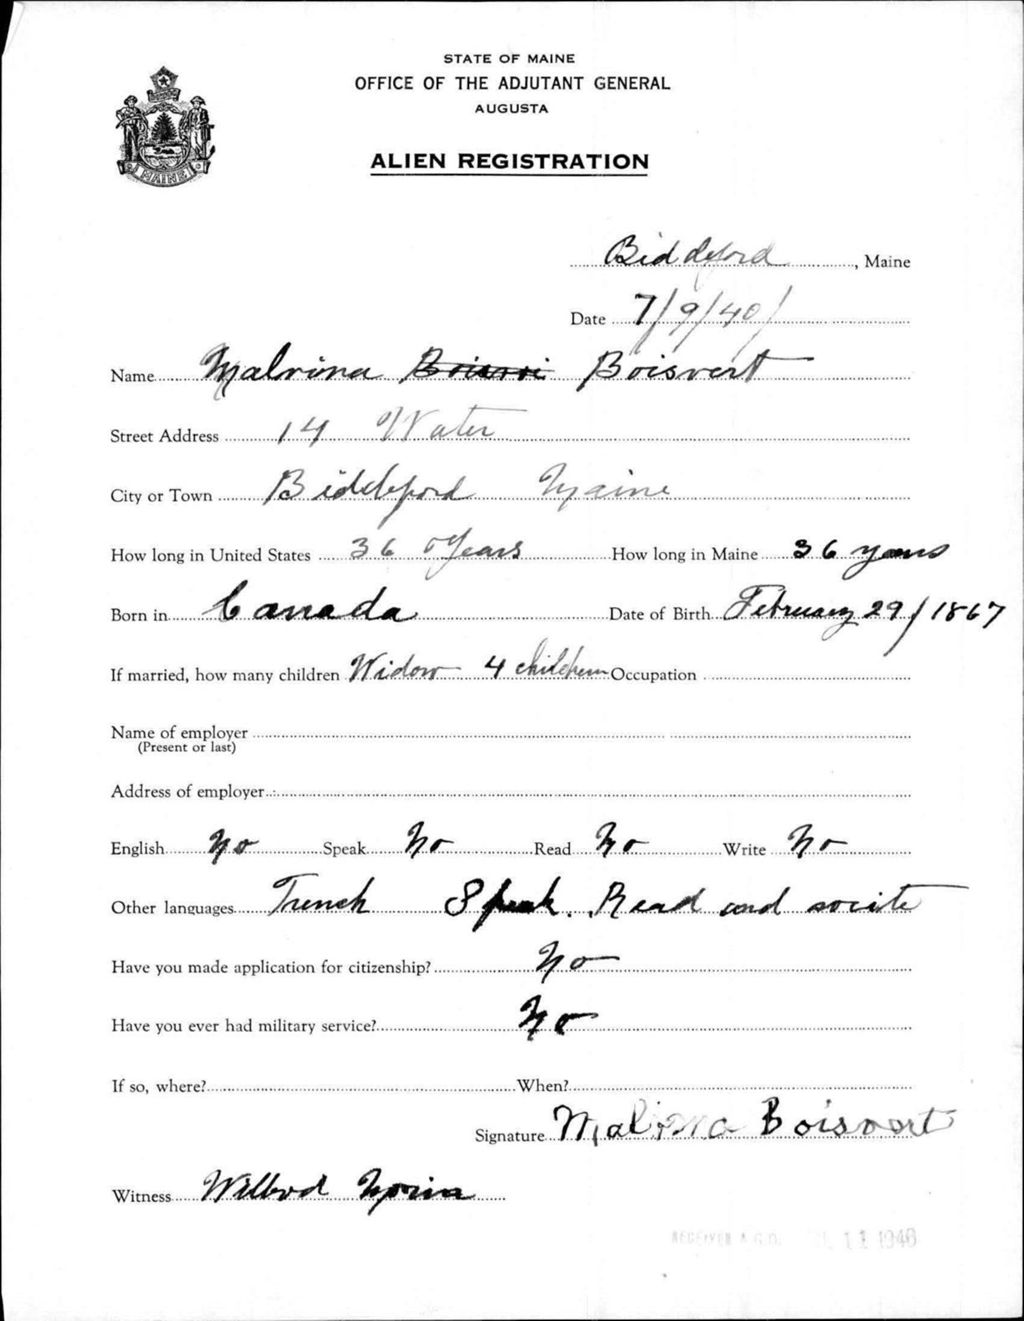 STATE OF MAINE
OFFICE OF THE ADJUTANT GENERAL
AUGUSTA
MAINE
ALIEN REGISTRATION
Biddeford, Maine
Date 7/9/40/
Name Malvina Boisvert
Street Address 14 Water
City or Town Biddeford Maine
How long in United States 36 Years How long in Maine 36 years
Born in Canada Date of Birth February 29/1867
If married, how many children Widow 4 children Occupation
Name of employer
(Present or last)
Address of employer
English No Speak No Read No Write No
Other languages French Speak. Read and
Have you made application for citizenship? No
Have you ever had military service? No
If so, where? When?
Signature Malvina Boisvert
Witness
RECEIVED A.G.O. 11 1940